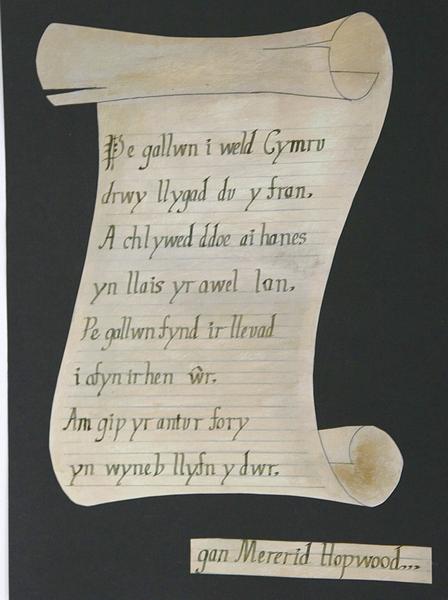 Pe gallwn i weld Cymru
drwy llygad du y fran,
A chlywed ddoe ai hanes
yn llais yr awel lan,
Pe gallwn fynd ir lleuad
i ofyn ir hen ŵr,
Am gip yr antur fory
yn wyneb llyfn y dwr.
gan Mererid Hopwood...